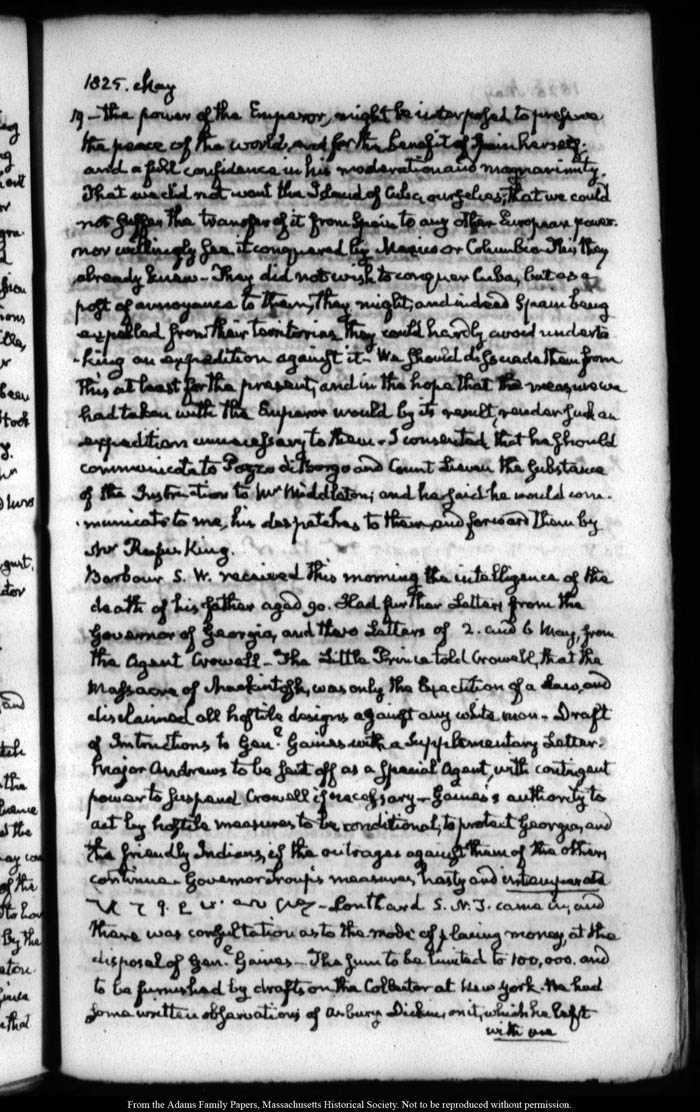 1825. May
19 - the power of the Emperor, might be interposed to preserve
the peace of the world, and for the benefit of Spain herself.
and a full confidence in his moderation and magnanimity.
That we did not want the Island of Cuba, ourselves; that we could
not suffer the transfer of it from Spain to any other European power.
nor willingly see it conquered by Mexico or Columbia. This they
already knew - They did not wish to conquer Cuba, but as a
post of annoyance to them, they might, and indeed Spain being
expelled from their territories, they could hardly avoid underta
-king an expedition against it - We should dissuade them from
this at least for the present, and in the hope that the measure we
had taken with the Emperor would by its result, render such an
expedition unnecessary to them - I consented that he should
communicate to Pozzo di Borgo and Count Lieven the substance
of the Instruction to Mr Middleton; and he said he would com-
-municate to me, his despatches to them, and forward them by
Mr Rufus King.
Barbour S. W. received this morning the intelligence of the
death of his father aged 90. Had further Letters from the
Governor of Georgia, and two Letters of 2. and 6 May, from
the Agent Crowell - The Little Prince told Crowell, that the
Massacre of Mackintosh, was only the Execution of a Law, and
disclaimed all hostile designs against any white man - Draft
of Instructions to Genl Gaines with a Supplementary Letter.
Major Andrews to be sent off as a Special Agent, with contingent
power to suspend Crowell if necessary - Gaines's authority to
act by hostile measures to be conditional, to protect Georgia, and
the friendly Indians, if the outrages against them of the others
continue - Governor Troup's measures, hasty and intemperate
- Southard S. N. J. came in, and
there was consultation as to the mode of placing money, at the
disposal of Genl Gaines - The sum to be limited to 100,000. and
to be furnished by drafts on the Collector at New York. He had
some written observations of Asbury Dickins, on it, which he left
with me
From the Adams Family Papers, Massachusetts Historical Society. Not to be reproduced without permission.